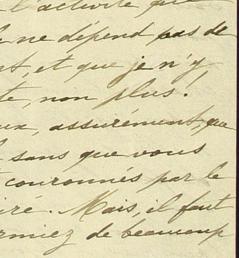 l'activité que
ne dépend pas de
et que je n'y
non plus!
assurément, que
sans que vous
couronnés par le
Mais, il faut
de beaucoup